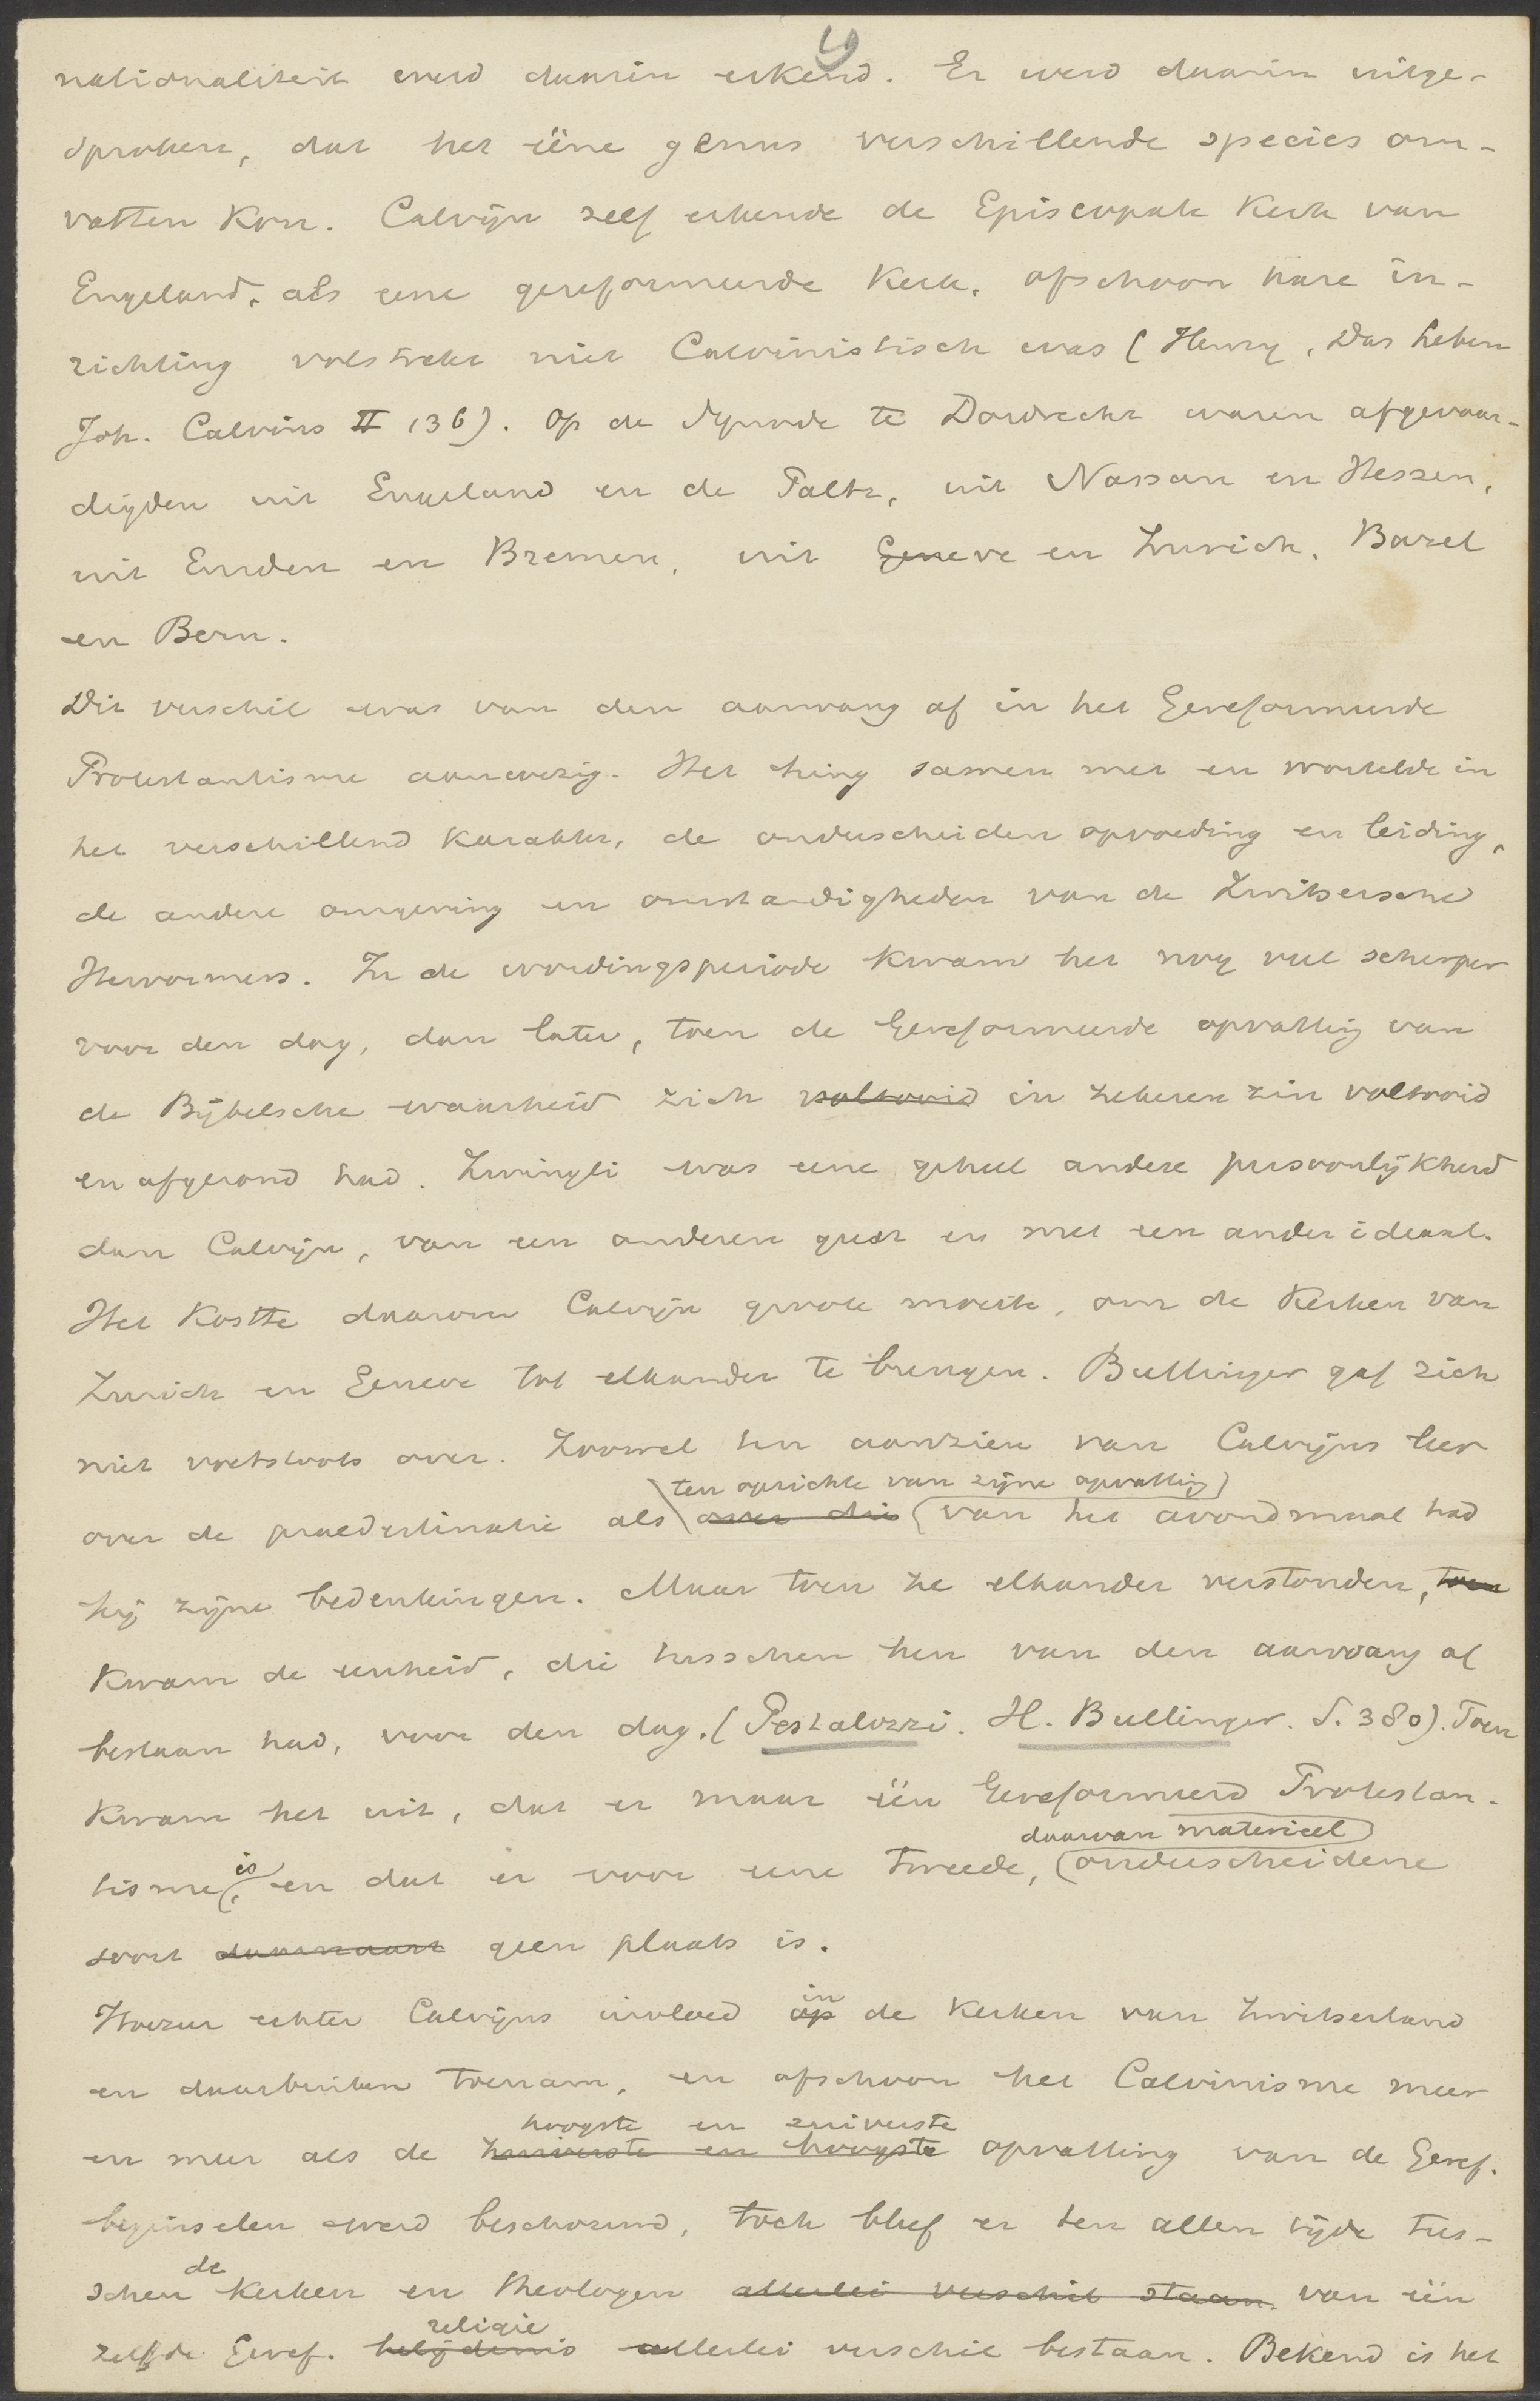 9
nationaliteit werd daarin erkend. Er werd daarin uitge-
sproken, dat het ééne genus verschillende species om-
vatten kon. Calvijn zelf erkende de Episcopale Kerk van
Engeland, als eene gereformeerde Kerk, ofschoon hare in-
richting volstrekt niet Calvinistisch was (Henry, Das Leben
Joh. Calvins II 136). Op de Synode te Dordrecht waren afgevaar-
digden uit Engeland en de Paltz, uit Nassau en Hessen,
uit Emden en Bremen, uit Geneve en Zurich, Bazel
en Bern.
Dit verschil was van den aanvang af in het Gereformeerde
Protestantisme aanwezig. Het hing samen met en wortelde in
het verschillend karakter, de onderscheiden opvoeding en leiding,
de andere omgeving en omstandigheden van de Zwitsersche
Hervormers. In de wordingsperiode kwam het nog veel scherper
voor den dag, dan later, toen de Gereformeerde opvatting van
de Bijbelsche waarheid zich voltooid in zekeren zin voltooid
en afgerond had. Zwingli was eene geheel andere persoonlijkheid
dan Calvijn, van een anderen geest en met een ander ideaal.
Het kostte daarom Calvijn groote moeite, om de Kerken van
Zurich en Geneve tot elkander te brengen. Bullinger gaf zich
niet voetstoots over. Zoowel ten aanzien van Calvijns leer
ten opzichte van zijne opvatting
over de praedestinatie als over die van het avondmaal had
hij zijne bedenkingen. Maar toen ze elkander verstonden, toen
kwam de eenheid, die tusschen hen van den aanvang af
bestaan had, voor den dag. (Pestalozzi. H. Bullinger. S. 380). Toen
kwam het uit, dat er maar één Gereformeerd Protestan-
daarvan materieel
tisme is, en dat er voor eene tweede, onderscheidene
soort daarnaast geen plaats is.
in
Hoezeer echter Calvijns invloed op de Kerken van Zwitserland
en daarbuiten toenam, en ofschoon het Calvinisme meer
hoogste en zuiverste
en meer als de zuiverste en hoogste opvatting van de Geref.
beginselen werd beschouwd, toch bleef er ten allen tijde tus-
de
schen Kerken en theologen allerlei verschil staan. van één
religie
zelfde Geref. belijdenis allerlei verschil bestaan. Bekend is het